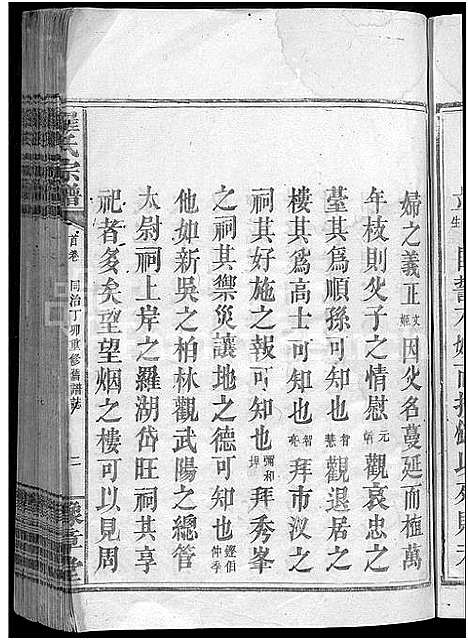 婦之義正文姬因父名蔓延而植萬
年枝則父子之情慰元炳觀哀忠之
臺其為順孫可知也慧觀退居之
樓其為高士可知也智亮拜市汊之
祠其好施之報可知也彌和拜秀峯
之祠其禦災讓地之德可知也鏗伯仲季
他如新吳之柏林觀武陽之總管
太尉祠上岸之羅湖岱旺祠其享
祀者多矣至望烟之樓可以見周
羅氏宗譜
首卷 同治丁卯重修舊譜誌 二
豫章堂